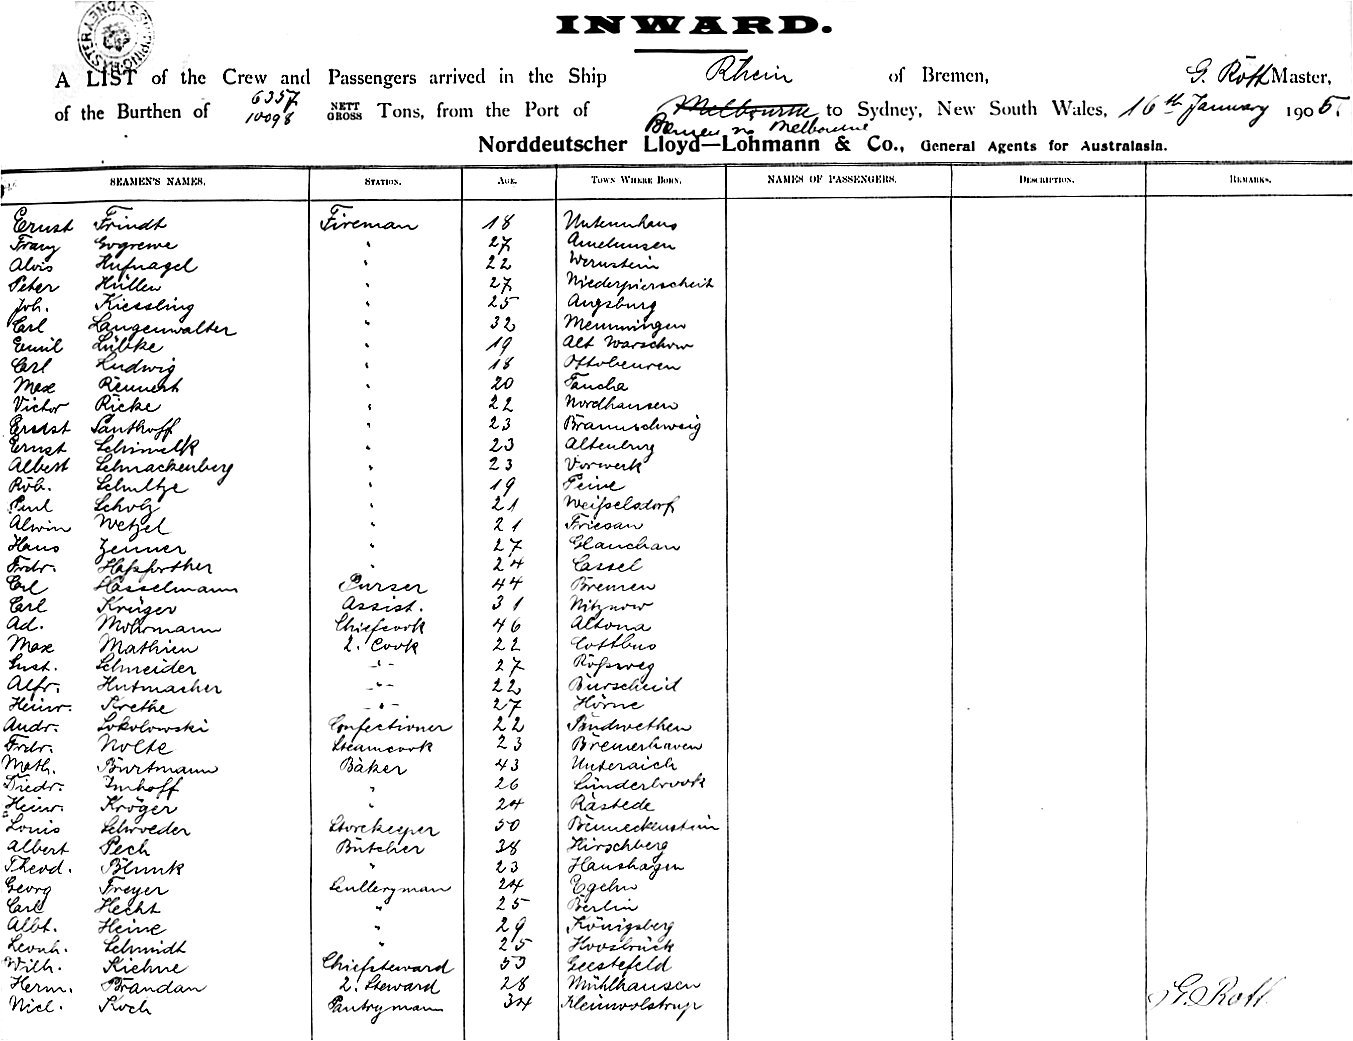 INWARD.
A LIST of the Crew and Passengers arrived in the Ship Rhein of Bremen, G. Rött Master,
of the Burthen of 6357 10098 NETT GROSS Tons, from the Port of Melbourne to Sydney, New South Wales, 16th January 1905.
Bremen via Melbourne
Norddeutscher Lloyd—Lohmann & Co., General Agents for Australasia.
SEAMEN'S NAMES. STATION. AGE. TOWN WHERE BORN. NAMES OF PASSENGERS. DESCRIPTION. REMARKS.
Ernst Frindt Fireman 18 Untermhaus
Franz Evgrewe " 27 Amelunxen
Alois Hufnagel " 22 Wernstein
Peter Hüllen " 27 Niederpierscheit
Joh. Kiessling " 25 Augsburg
Carl Langenwalter " 32 Memmingen
Emil Lübke " 19 Alt Warschow
Carl Ludwig " 18 Ottobeuren
Max Rennert " 20 Taucha
Victor Ricke " 22 Nordhausen
Ernst Santhoff " 23 Braunschweig
Ernst Schimelk " 23 Altenburg
Albert Schnackenberg " 23 Vorwerk
Rob. Schultze " 19 Peine
Paul Scholz " 21 Weifselsdorf
Alwin Wetzel " 21 Friesau
Hans Zenner " 27 Glauchau
Frdr. " 24 Cassel
Carl Hasselmann Purser 44 Bremen
Carl Krüger Assist. 31 Nitznow
Ad. Mohrmann Chiefcook 46 Altona
Max Mathieu 2. Cook 22 Cottbus
Gust. Schneider -"- 27 Rößweg
Alfr. Hutmacher -"- 22 Burscheid
Heinr. Krethe -"- 27 Hörne
Andr. Sokolowski Confectioner 22
Frdr. Nolte Steamcook 23 Bremerhaven
Math. Burtmann Bäker 43 Unteraich
Diedr. Imhoff " 26 Sünderbrook
Heinr. Kröger " 24 Rastede
Louis Schroeder Storekeeper 50 Benneckenstein
Albert Pech Butcher 38 Hirschberg
Theod. Blunk " 23 Haushagen
Georg Freyer Sculleryman 24 Egeln
Carl Hecht " 25 Berlin
Albt. Heine " 29 Königsberg
Leonh. Schmidt " 25 Hoosbrück
Wilh. Kiehne Chiefsteward 53 Geestefeld
Herm. Brandau 2. Steward 28 Mühlhausen
Nicl. Koch Pantryman 34 Kleinwolstrup
G. Rött